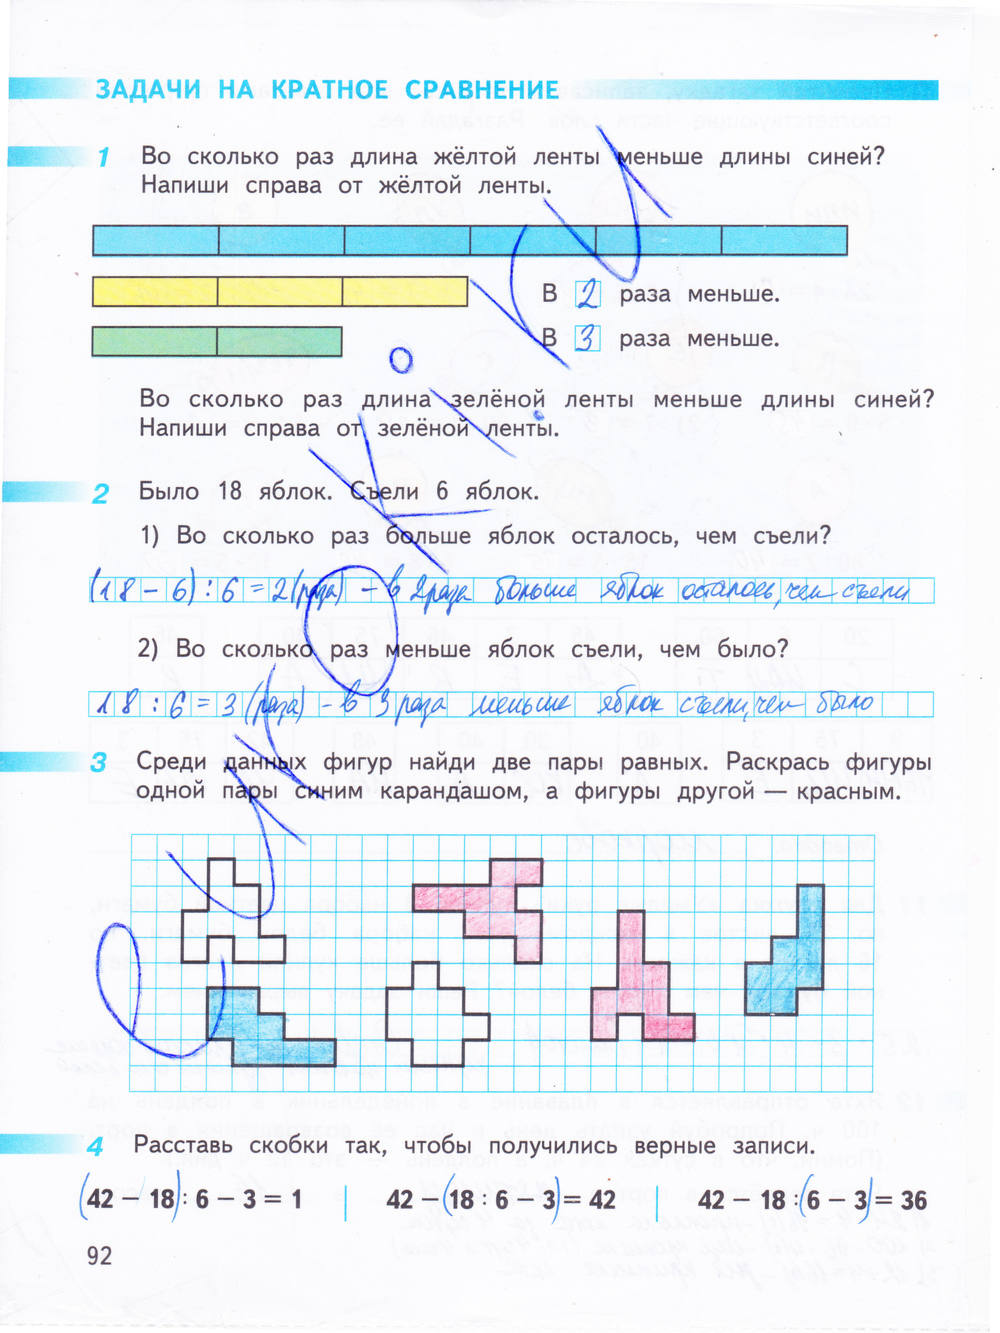 ЗАДАЧИ НА КРАТНОЕ СРАВНЕНИЕ
1 Во сколько раз длина жёлтой ленты меньше длины синей?
Напиши справа от жёлтой ленты.
В 2 раза меньше.
В 3 раза меньше.
Во сколько раз длина зелёной ленты меньше длины синей?
Напиши справа от зелёной ленты.
2 Было 18 яблок. Съели 6 яблок.
1) Во сколько раз больше яблок осталось, чем съели?
(18 - 6) : 6 = 2 (раза) - в 2 раза больше яблок осталось, чем съели
2) Во сколько раз меньше яблок съели, чем было?
18 : 6 = 3 (раза) - в 3 раза меньше яблок съели, чем было
3 Среди данных фигур найди две пары равных. Раскрась фигуры
одной пары синим карандашом, а фигуры другой — красным.
4 Расставь скобки так, чтобы получились верные записи.
(42 - 18) : 6 - 3 = 1 42 - (18 : 6 - 3) = 42 42 - 18 : (6 - 3) = 36
92